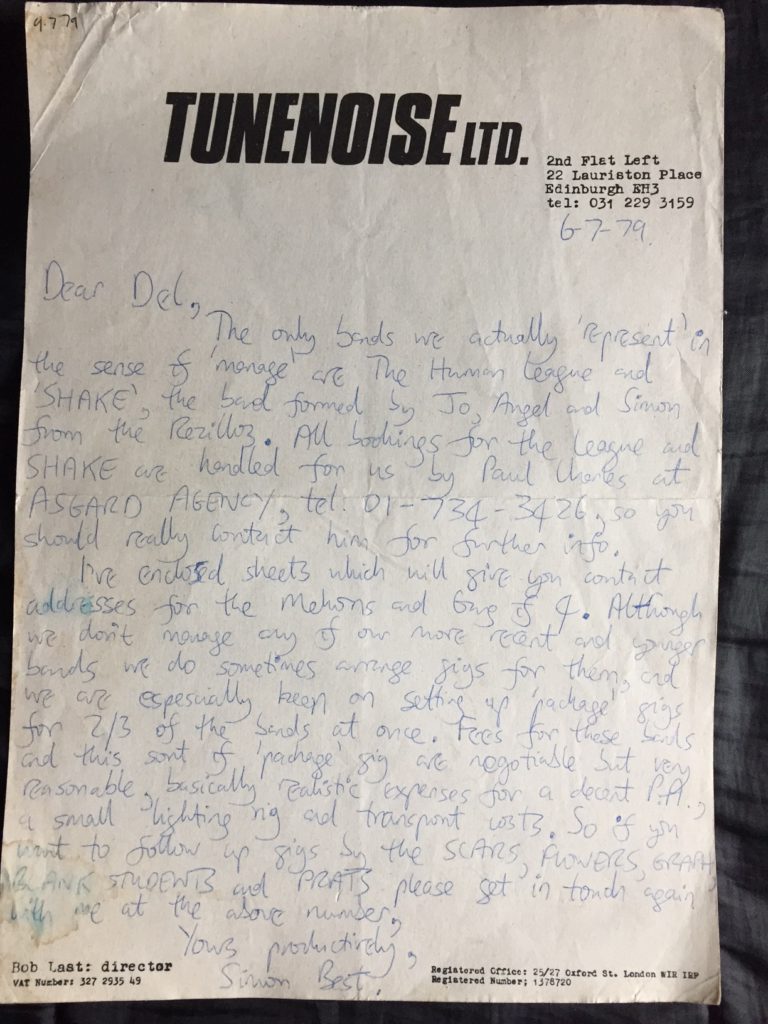 9.7.79
TUNENOISE LTD.
2nd Flat Left
22 Lauriston Place
Edinburgh EH3
tel: 031 229 3159
6-7-79.
Dear Del,
The only bands we actually 'represent' in
the sense of 'manage' are The Human League and
'SHAKE', the band formed by Jo, Angel and Simon
from the Rezillos. All bookings for the League and
SHAKE are handled for us by Paul Charles at
ASGARD AGENCY, tel. 01-734-3426, so you
should really contact him for further info.
I've enclosed sheets which will give you contact
addresses for the Mekons and Gang of 4. Although
we don't manage any of our more recent and younger
bands we do sometimes arrange gigs for them, and
we are especially keen on setting up 'package' gigs
for 2/3 of the bands at once. Fees for these bands
and this sort of 'package' gig are negotiable but very
reasonable, basically realistic expenses for a decent P.A.,
a small lighting rig and transport costs. So if you
want to follow up gigs by the SCARS, FLOWERS, GRAPH,
BLANK STUDENTS and PRATS please get in touch again
with me at the above number,
Yours productively,
Simon Best.
Bob Last: director
VAT Number: 327 2935 49
Registered Office: 25/27 Oxford St. London W1R 1RF
Registered Number; 1378720